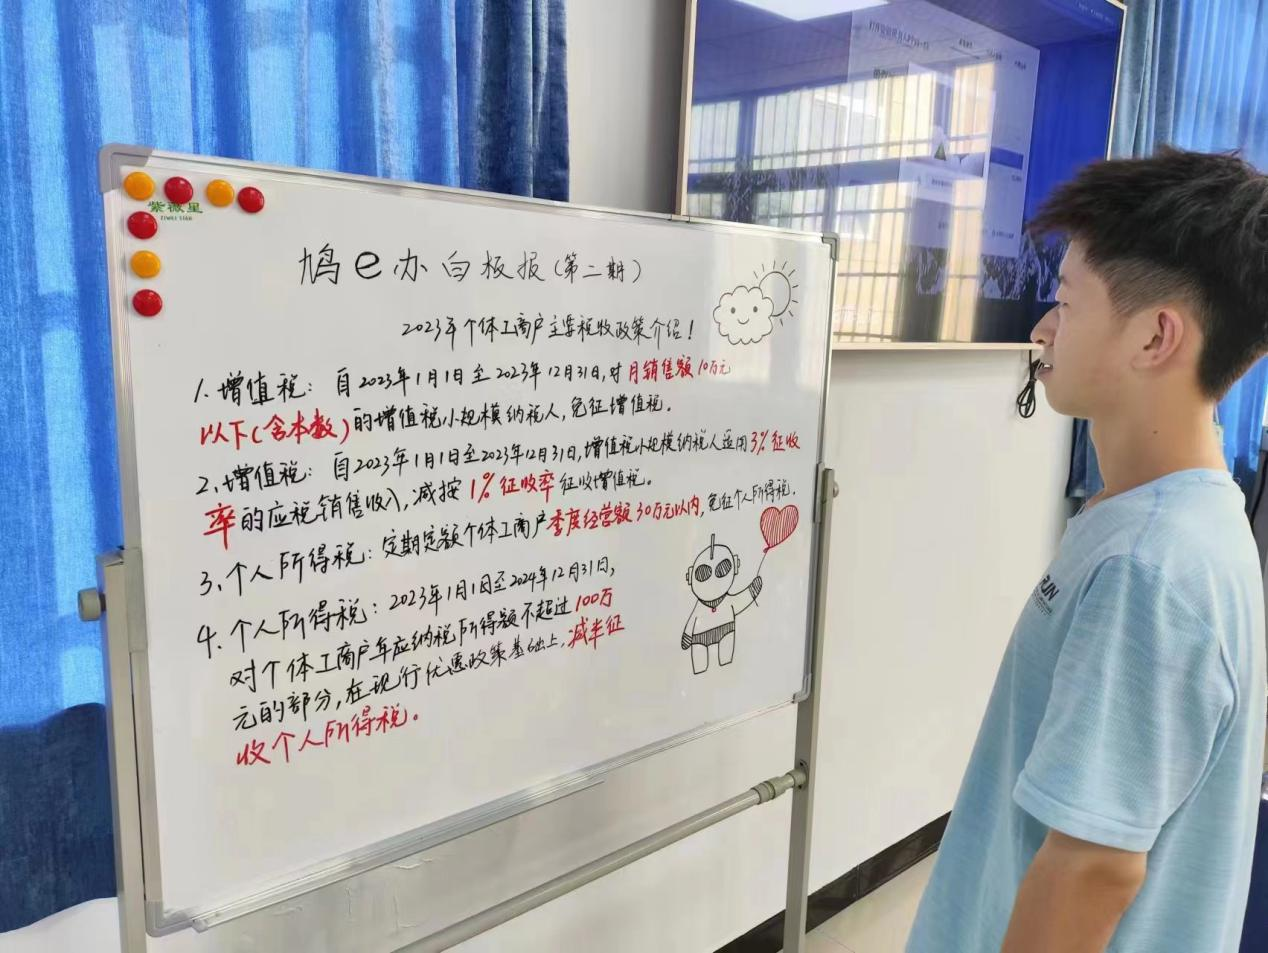 紫微星
ZIWEI STAR
鸠e办白板报(第二期)
2023年个体工商户主要税收政策介绍!
1.增值税:自2023年1月1日至2023年12月31日,对月销售额10万元
以下(含本数)的增值税小规模纳税人,免征增值税。
2.增值税:自2023年1月1日至2023年12月31日,增值税小规模纳税人适用3%征收
率的应税销售收入,减按1%征收率征收增值税。
3.个人所得税:定期定额个体工商户季度经营额30万元以内,免征个人所得税.
4.个人所得税:2023年1月1日至2024年12月31日,
对个体工商户年应纳税所得额不超过100万
元的部分,在现行优惠政策基础上,减半征
收个人所得税。